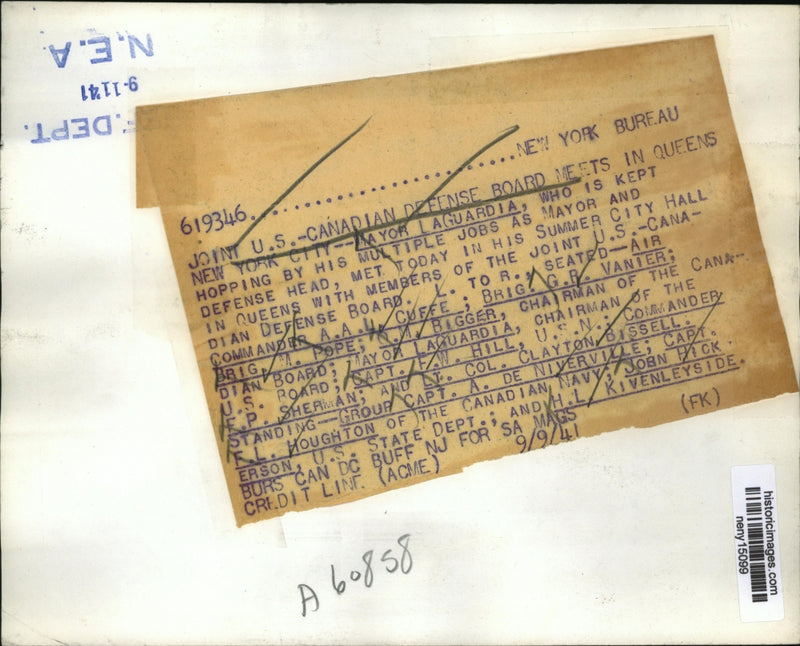 N.E.A.
9-11-41
F. DEPT.
619346..............................NEW YORK BUREAU
JOINT U.S.-CANADIAN DEFENSE BOARD MEETS IN QUEENS
NEW YORK CITY--MAYOR LAGUARDIA, WHO IS KEPT
HOPPING BY HIS MULTIPLE JOBS AS MAYOR AND
DEFENSE HEAD, MET TODAY IN HIS SUMMER CITY HALL
IN QUEENS WITH MEMBERS OF THE JOINT U.S.-CANA-
DIAN DEFENSE BOARD. L. TO R., SEATED--AIR
COMMANDER A.A. CUFFE; BRIG. G.P. VANIER;
BRIG. M. POPE; BIGGER, CHAIRMAN OF THE CANA-
DIAN BOARD; MAYOR LAGUARDIA, CHAIRMAN OF THE
U.S. BOARD; CAPT. H.W. HILL, U.S.N.; COMMANDER
F.P. SHERMAN; AND LT. COL. CLAYTON BISSELL.
STANDING--GROUP CAPT. A. DE NIVERVILLE; CAPT.
F.L. HOUGHTON OF THE CANADIAN NAVY; JOHN HICK-
ERSON, U.S. STATE DEPT.; AND H.L. KIVENLEYSIDE.
BURS CAN DC BUFF NJ FOR SA MAGS (FK)
CREDIT LINE (ACME) 9/9/41
A 60858
historicimages.com
neny15099